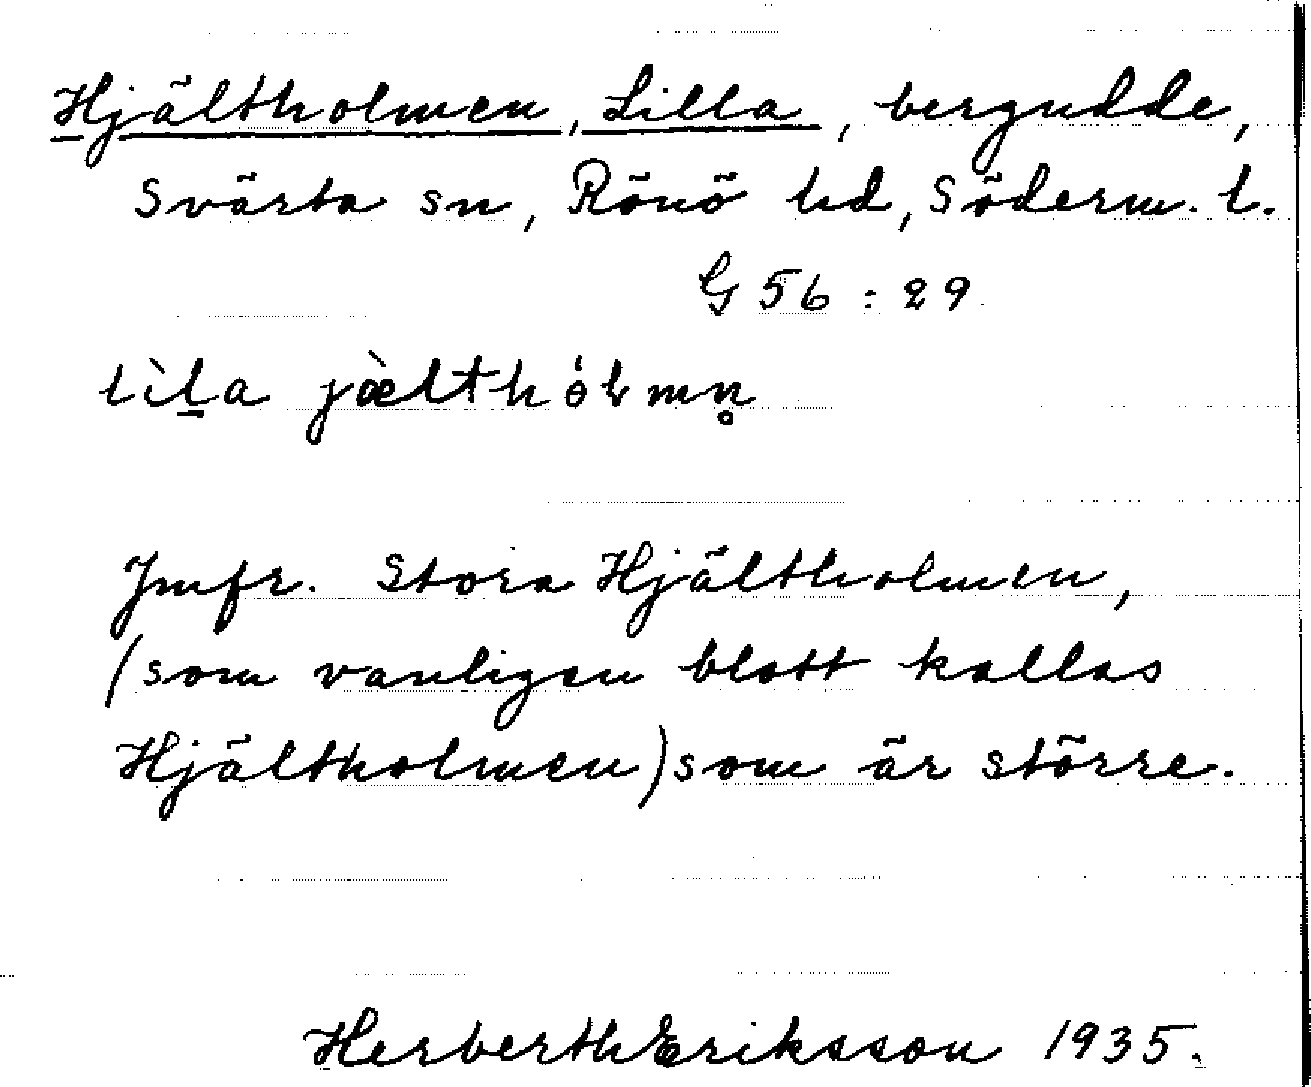 Hjältholmen, Lilla, bergudde,
Svärta sn, Rönö hd, Söderm. l.
G 56 : 29
lìl̠a jæ̀lthólmn̥
Jmfr. Stora Hjältholmen,
(som vanligen blott kallas
Hjältholmen) som är större.
Herberth Eriksson 1935.